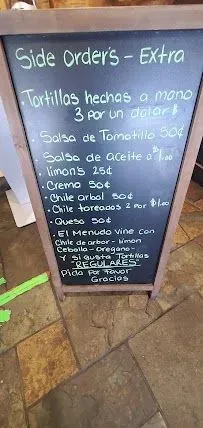 Side Order's - Extra
• Tortillas hechas a mano
3 por un dolar $
• Salsa de Tomatillo 50¢
• Salsa de aceite a $1.00
• limon's 25¢
• Crema 50¢
• Chile arbol 50¢
• Chile toreados 2 por $1.00
• Queso 50¢
• El Menudo Vine con
Chile de arbor - limon
Cebolla - Oregano -
Y si gusta Tortillas
"REGULARES"
Pida Por Favor
Gracias